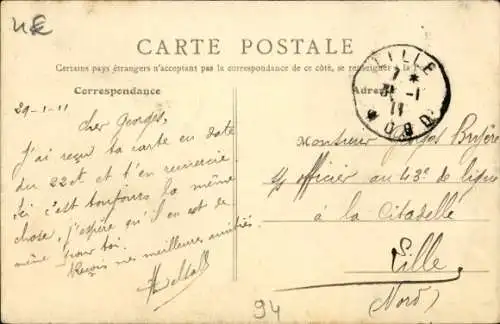 4€
CARTE POSTALE
Certains pays étrangers n'acceptant pas la correspondance de ce côté, se renseigner à la
Correspondance
Adre
LILLE
7 *
31 -1
11
NORD
29-1-11
Cher Georges,
J'ai reçu ta carte en date
du 22 ct et t'en remercie
Ici c'est toujours la même
chose, j'espère qu'il en est de
même pour toi.
Reçois mes meilleures amitiés
Monsieur Georges Bruyère
s/officier au 43e de ligne
à la Citadelle
Lille
(Nord)
94